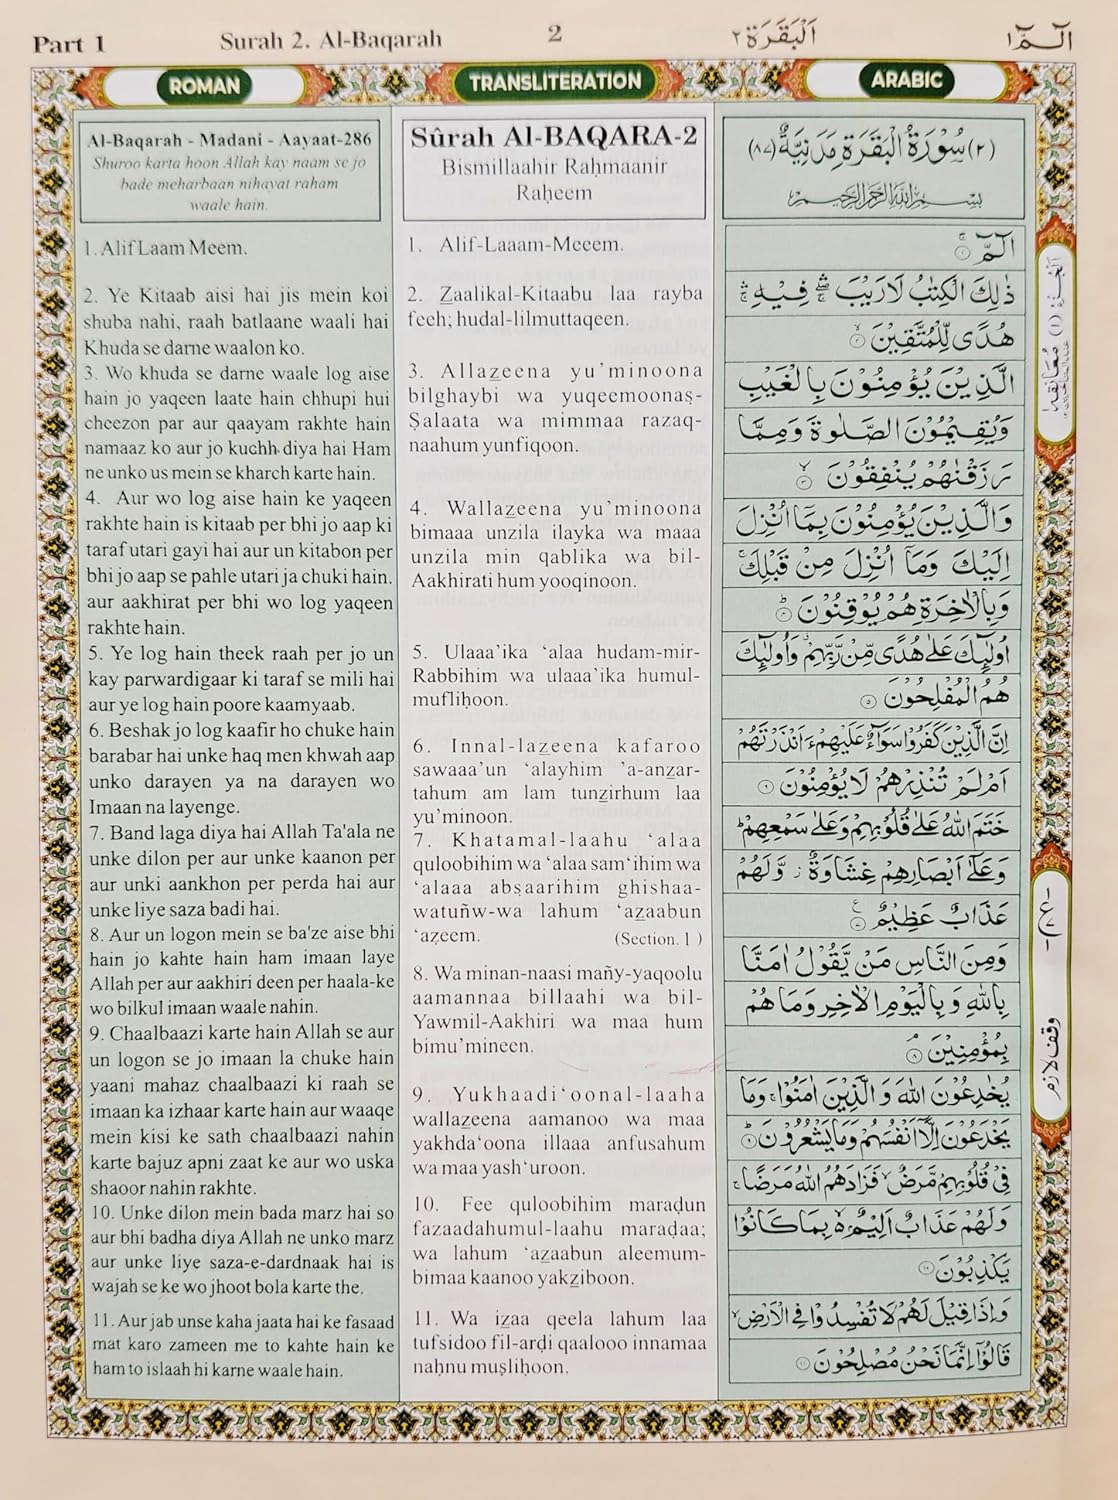 Part 1
Surah 2. Al-Baqarah
2
اَلْبَقَرَة ٢
الٓـمّٓ ١
ROMAN
TRANSLITERATION
ARABIC
Al-Baqarah - Madani - Aayaat-286
Shuroo karta hoon Allah kay naam se jo
bade meharbaan nihayat raham
waale hain.
1. Alif Laam Meem.
2. Ye Kitaab aisi hai jis mein koi
shuba nahi, raah batlaane waali hai
Khuda se darne waalon ko.
3. Wo khuda se darne waale log aise
hain jo yaqeen laate hain chhupi hui
cheezon par aur qaayam rakhte hain
namaaz ko aur jo kuchh diya hai Ham
ne unko us mein se kharch karte hain.
4. Aur wo log aise hain ke yaqeen
rakhte hain is kitaab per bhi jo aap ki
taraf utari gayi hai aur un kitabon per
bhi jo aap se pahle utari ja chuki hain.
aur aakhirat per bhi wo log yaqeen
rakhte hain.
5. Ye log hain theek raah per jo un
kay parwardigaar ki taraf se mili hai
aur ye log hain poore kaamyaab.
6. Beshak jo log kaafir ho chuke hain
barabar hai unke haq men khwah aap
unko darayen ya na darayen wo
Imaan na layenge.
7. Band laga diya hai Allah Ta'ala ne
unke dilon per aur unke kaanon per
aur unki aankhon per perda hai aur
unke liye saza badi hai.
8. Aur un logon mein se ba'ze aise bhi
hain jo kahte hain ham imaan laye
Allah per aur aakhiri deen per haala-ke
wo bilkul imaan waale nahin.
9. Chaalbaazi karte hain Allah se aur
un logon se jo imaan la chuke hain
yaani mahaz chaalbaazi ki raah se
imaan ka izhaar karte hain aur waaqe
mein kisi ke sath chaalbaazi nahin
karte bajuz apni zaat ke aur wo uska
shaoor nahin rakhte.
10. Unke dilon mein bada marz hai so
aur bhi badha diya Allah ne unko marz
aur unke liye saza-e-dardnaak hai is
wajah se ke wo jhoot bola karte the.
11. Aur jab unse kaha jaata hai ke fasaad
mat karo zameen me to kahte hain ke
ham to islaah hi karne waale hain.
Sûrah Al-BAQARA-2
Bismillaahir Raḥmaanir
Raḥeem
1. Alif-Laaam-Meeem.
2. Z̲aalikal-Kitaabu laa rayba
feeh; hudal-lilmuttaqeen.
3. Allaz̲eena yu’minoona
bilghaybi wa yuqeemoonaṣ-
Ṣalaata wa mimmaa razaq-
naahum yunfiqoon.
4. Wallaz̲eena yu’minoona
bimaaa unzila ilayka wa maaa
unzila min qablika wa bil-
Aakhirati hum yooqinoon.
5. Ulaaa’ika ‘alaa hudam-mir-
Rabbihim wa ulaaa’ika humul-
mufliḥoon.
6. Innal-laz̲eena kafaroo
sawaaa’un ‘alayhim ’a-anz̲ar-
tahum am lam tunz̲irhum laa
yu’minoon.
7. Khatamal-laahu ‘alaa
quloobihim wa ‘alaa sam‘ihim wa
‘alaaa abṣaarihim ghishaa-
watuñw-wa lahum ‘az̲aabun
‘aẓeem. (Section. 1 )
8. Wa minan-naasi mañy-yaqoolu
aamannaa billaahi wa bil-
Yawmil-Aakhiri wa maa hum
bimu’mineen.
9. Yukhaadi‘oonal-laaha
wallaz̲eena aamanoo wa maa
yakhda‘oona illaaa anfusahum
wa maa yash‘uroon.
10. Fee quloobihim maraḍun
fazaadahumul-laahu maraḍaa;
wa lahum ‘az̲aabun aleemum-
bimaa kaanoo yakz̲iboon.
11. Wa iz̲aa qeela lahum laa
tufsidoo fil-arḍi qaalooo innamaa
naḥnu muṣliḥoon.
(٢) سُوْرَةُ الْبَقَرَةِ مَدَنِيَّةٌ (٨٧)
بِسْمِ اللهِ الرَّحْمٰنِ الرَّحِيْمِ
الٓمّٓ ۚ ١
ذٰلِكَ الْكِتٰبُ لَا رَيْبَ ۛۖ فِيْهِ ۛۚ
هُدًى لِّلْمُتَّقِيْنَ ۙ ٢
الَّذِيْنَ يُؤْمِنُوْنَ بِالْغَيْبِ
وَيُقِيْمُوْنَ الصَّلٰوةَ وَمِمَّا
رَزَقْنٰهُمْ يُنْفِقُوْنَ ۙ ٣
وَالَّذِيْنَ يُؤْمِنُوْنَ بِمَآ اُنْزِلَ
اِلَيْكَ وَمَآ اُنْزِلَ مِنْ قَبْلِكَ ۚ
وَبِالْاٰخِرَةِ هُمْ يُوْقِنُوْنَ ؕ ٤
اُولٰٓئِكَ عَلٰى هُدًى مِّنْ رَّبِّهِمْ ۗ وَاُولٰٓئِكَ
هُمُ الْمُفْلِحُوْنَ ٥
اِنَّ الَّذِيْنَ كَفَرُوْا سَوَآءٌ عَلَيْهِمْ ءَاَنْذَرْتَهُمْ
اَمْ لَمْ تُنْذِرْهُمْ لَا يُؤْمِنُوْنَ ٦
خَتَمَ اللهُ عَلٰى قُلُوْبِهِمْ وَعَلٰى سَمْعِهِمْ ؕ
وَعَلٰٓى اَبْصَارِهِمْ غِشَاوَةٌ ؗ وَّلَهُمْ
عَذَابٌ عَظِيْمٌ ٧
وَمِنَ النَّاسِ مَنْ يَّقُوْلُ اٰمَنَّا
بِاللهِ وَبِالْيَوْمِ الْاٰخِرِ وَمَا هُمْ
بِمُؤْمِنِيْنَ ۘ ٨
يُخٰدِعُوْنَ اللهَ وَالَّذِيْنَ اٰمَنُوْا ۚ وَمَا
يَخْدَعُوْنَ اِلَّآ اَنْفُسَهُمْ وَمَا يَشْعُرُوْنَ ؕ ٩
فِيْ قُلُوْبِهِمْ مَّرَضٌ ۙ فَزَادَهُمُ اللهُ مَرَضًا ۚ
وَلَهُمْ عَذَابٌ اَلِيْمٌ ۢ بِمَا كَانُوْا
يَكْذِبُوْنَ ١٠
وَاِذَا قِيْلَ لَهُمْ لَا تُفْسِدُوْا فِي الْاَرْضِ ۙ
قَالُوْٓا اِنَّمَا نَحْنُ مُصْلِحُوْنَ ١١
معانقة
ع
وقف لازم